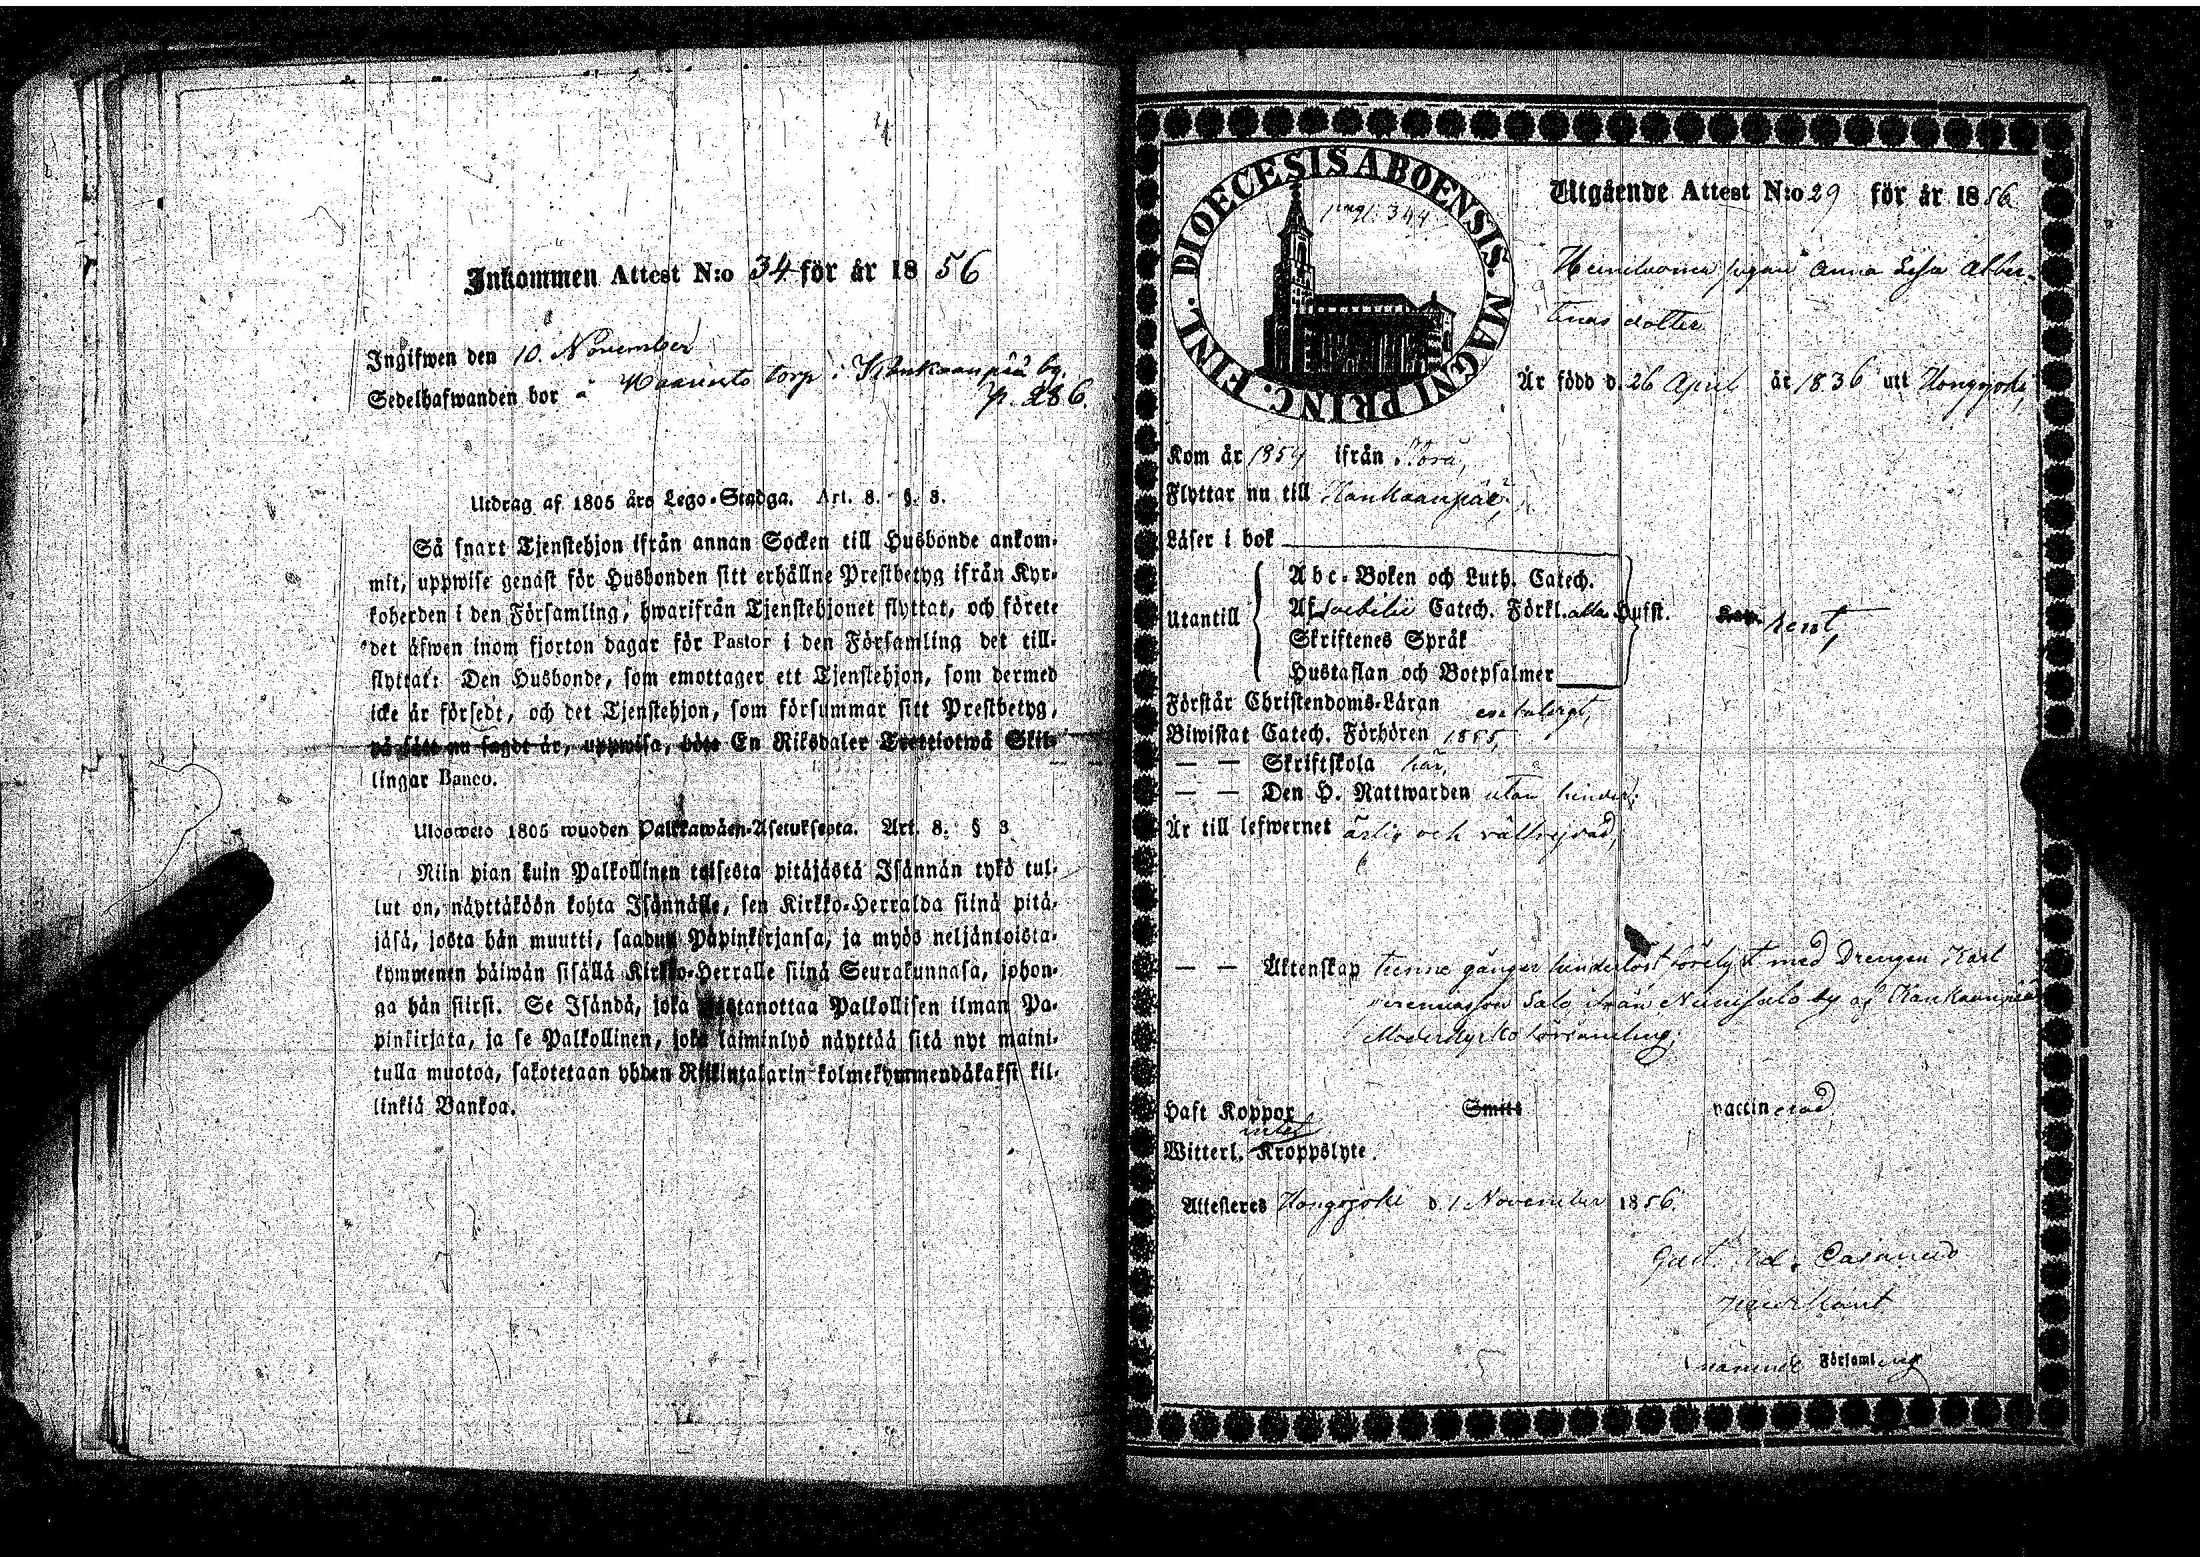 Inkommen Attest N:o 34 för år 1856
Ingifwen den 10. November
Sedelhafwanden bor å torp i Kankaanpää by.
p. 286.
Utdrag af 1805 års Lego-Stadga. Art. 8. §. 3.
Så snart Tjenstehjon ifrån annan Socken till Husbonde ankom-
mit, uppwise genast för Husbonden sitt erhållne Prestbetyg ifrån Kyr-
koherden i den Församling, hwarifrån Tjenstehjonet flyttat, och förete
det äfwen inom fjorton dagar för Pastor i den Församling det till-
flyttat: Den Husbonde, som emottager ett Tjenstehjon, som dermed
icke är försedt, och det Tjenstehjon, som försummar sitt Prestbetyg,
på sätt nu sagdt är, uppwisa, böte En Riksdaler Trettiotwå Skil-
lingar Banco.
Ulosweto 1805 wuoden Palkkawäen-Asetuksesta. Art. 8. § 3
Niin pian kuin Palkollinen toisesta pitäjästä Isännän tykö tul-
lut on, näyttäköön kohta Isännälle, sen Kirkko-Herralda siinä pitä-
jäsä, josta hän muutti, saadun Papinkirjansa, ja myös neljäntoista-
kymmenen päiwän sisällä Kirkko-Herralle siinä Seurakunnasa, johon-
ga hän siirsi. Se Isändä, joka wastanottaa Palkollisen ilman Pa-
pinkirjata, ja se Palkollinen, joka laiminlyö näyttää sitä nyt maini-
tulla muotoa, sakotetaan yhden Riikintalarin kolmekymmendäkaksi kil-
linkiä Bankoa.
DIOECESIS ABOENSIS. MAGNI PRINC. FINL.
pag. 344
Utgående Attest N:o 29 för år 1856
pigan Anna Lisa Alber-
tinas dotter
Är född d. 26 April år 1836 utt Hongojoki,
Kom år 1854 ifrån
Flyttar nu till Kankaanpää,
Läser i bok
Utantill
Abc-Boken och Luth. Catech.
Af Catech. Förkl. alla Hufst.
rent,
Skriftenes Språk
Hustaflan och Botpsalmer
Förstår Christendoms-Läran
Biwistat Catech. Förhören 1855,
— — Skriftskola här,
— — Den H. Nattwarden utan hinder,
Är till lefwernet ärlig och välfrejdad,
— — Äktenskap med Drengen Karl
Salo ifrån Niinisalo by af Kankaanpää
Moderkyrko församling;
Haft Koppor Smitt vaccinerad
intet
Witterl. Kroppslyte.
Attesteres Hongojoki d. 1 November 1856.
Församling